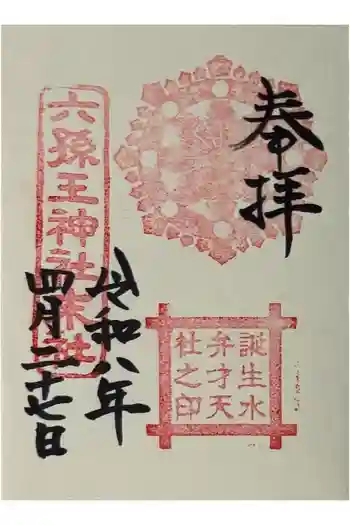 奉拝
誕生水
弁才天
社之印
令和八年
四月二十七日
六孫王神社末社